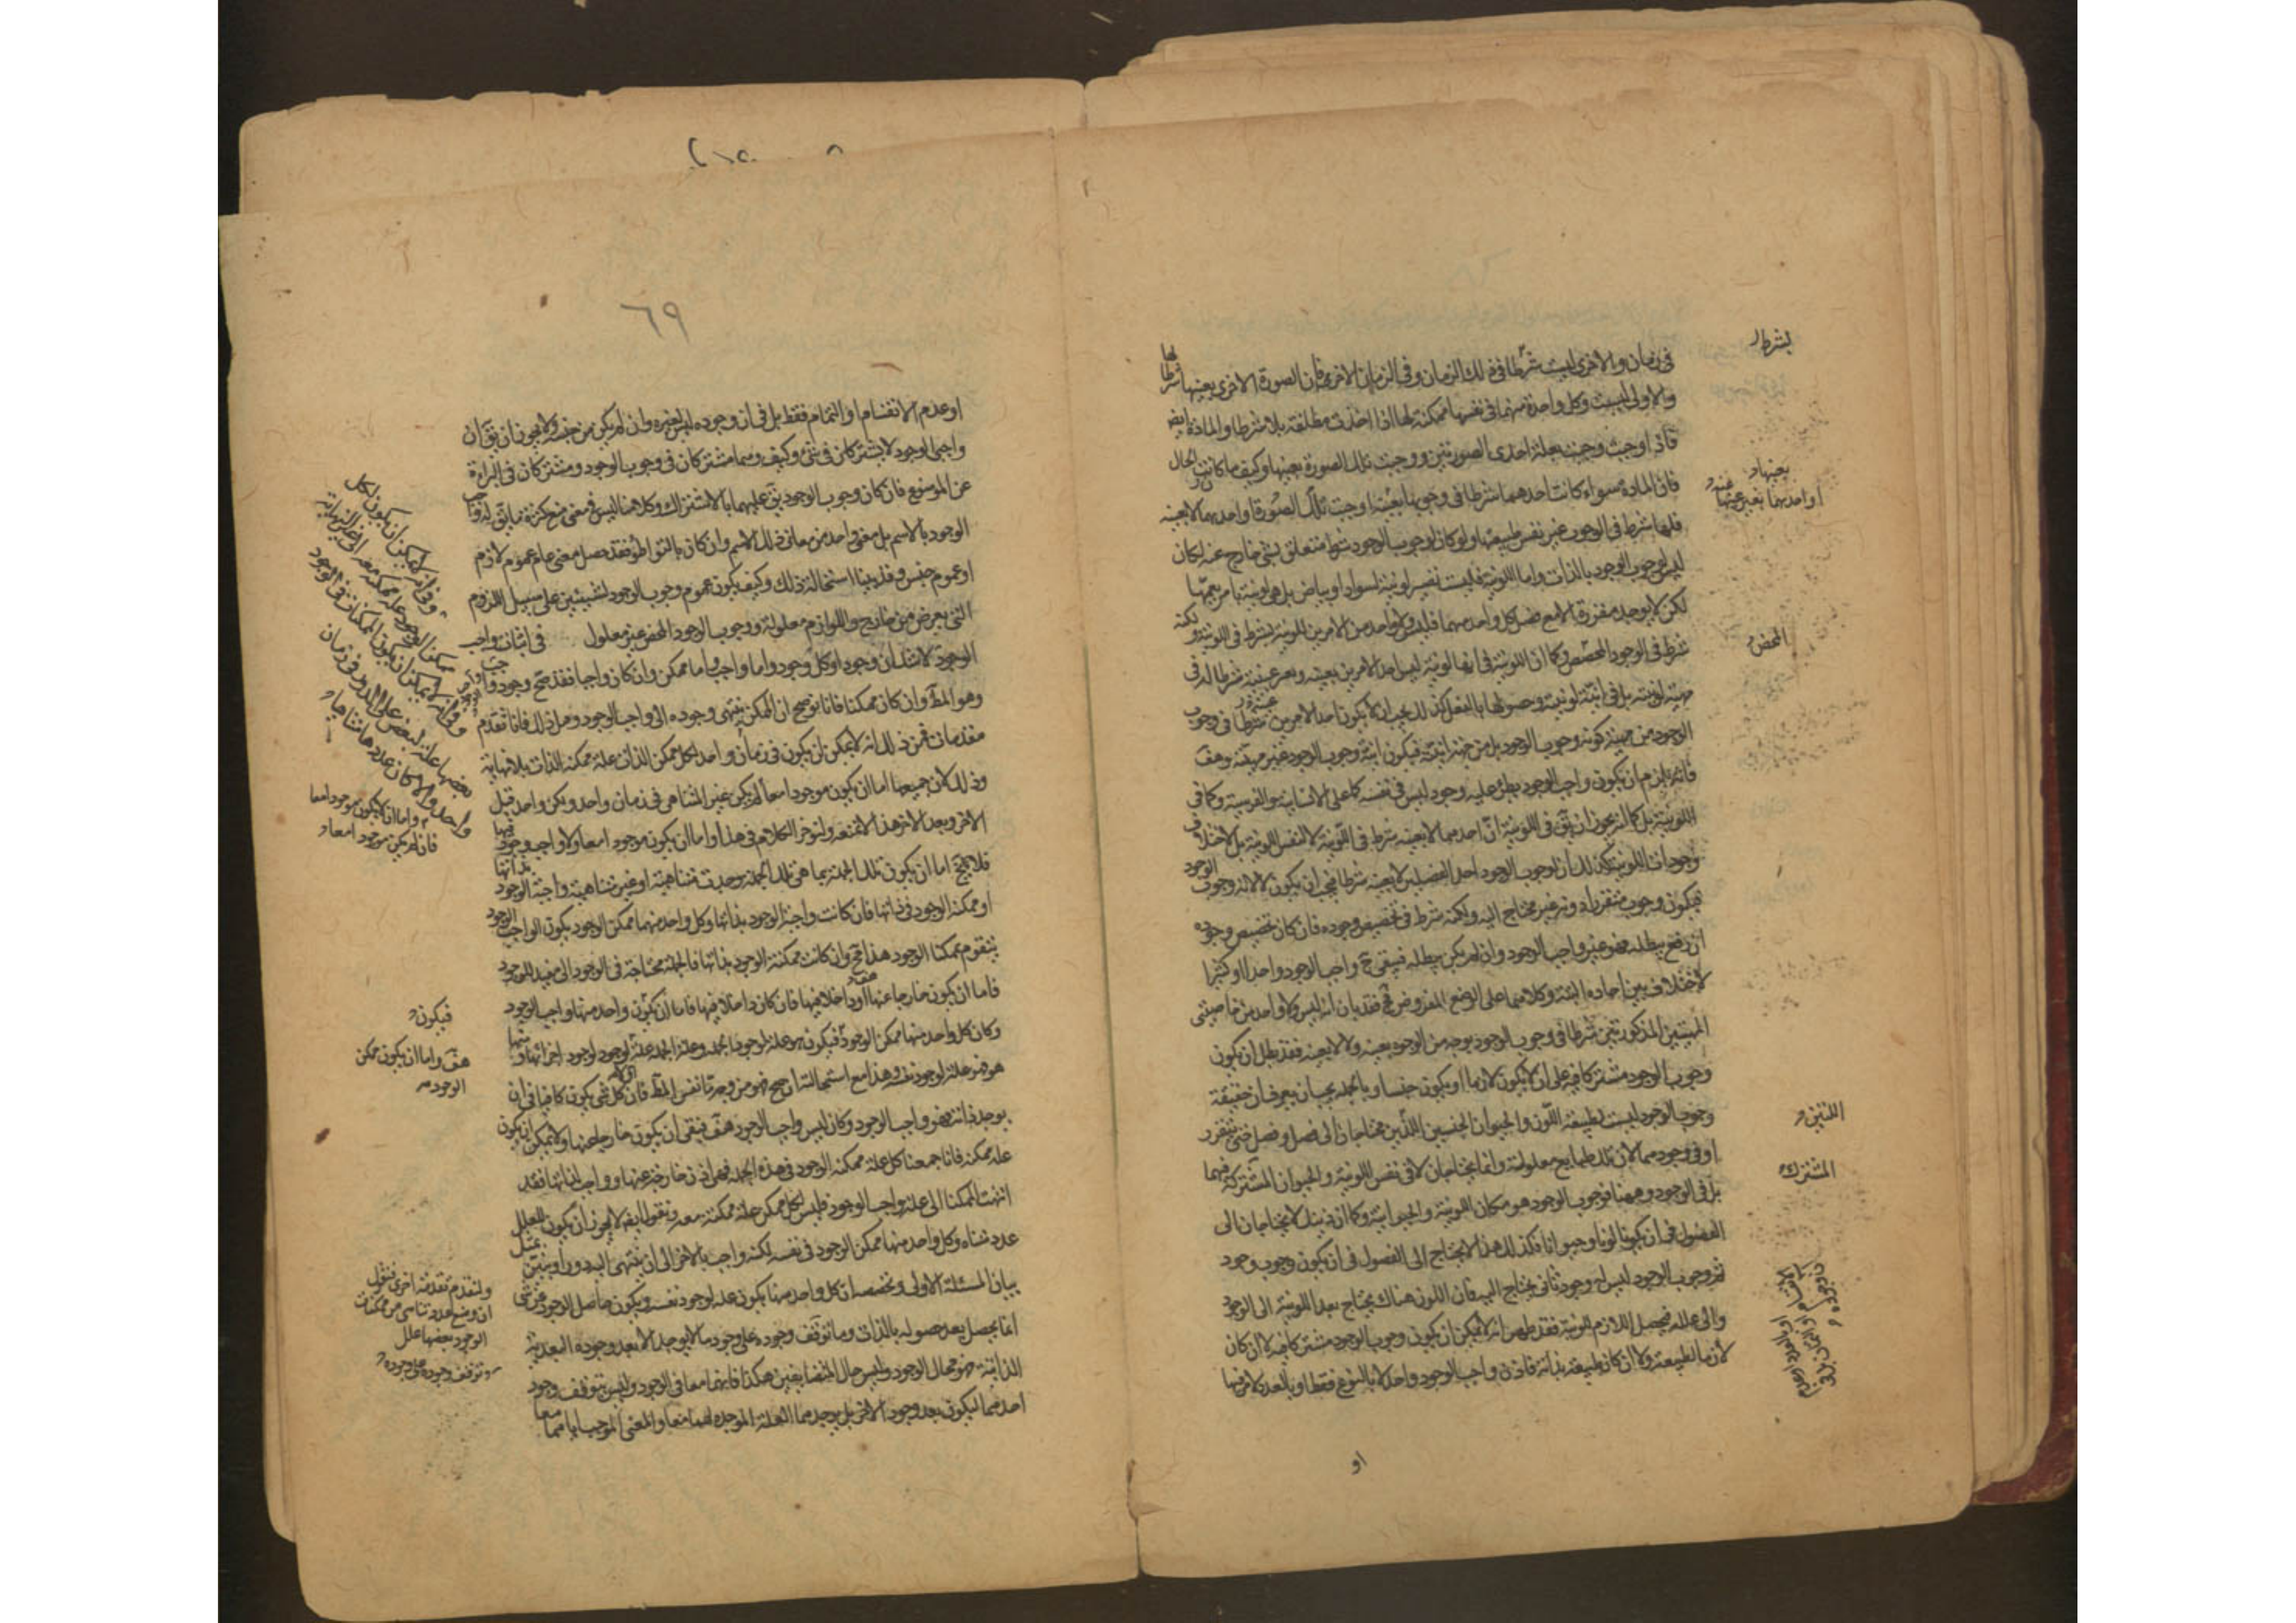 في زمان والاخرى ليست شرطا في ذلك الزمان وفي الزمان الاخر فان الصورة الاخرى بعينها شرط لها
والاولى ليست وكل واحدة منهما في نفسها ممكنة لها اذا اخذت مطلقة بلا شرط والمادة ايضا
فاذا وجبت وجبت بعلة احدى الصورتين ووجبت تلك الصورة بعينها وكيف ما كانت الحال
فان المادة سواء كانت احدهما شرطا في وجوبها بعينه او جبت تلك الصورة او احديهما لا بعينه
فلها شرط في الوجود غير نفس طبيعتها ولو كان لوجوب الوجود شرط متعلق بشئ خارج عنه لكان
ليس وجوب الوجود بالذات واما اللونية فليست تصير لونية لسواد او بياض بل هي لونية بامر يعمهما
لكن لا يوجد مفردة الا مع فصل كل واحد منهما فليس ولا واحد من الامرين للونية بشرط في اللونية ولكنه
شرط في الوجود المحصص وكما ان اللونية في انها لونية ليس احد الامرين بعينه وبغير عينه شرطا له في
مهية لونيته بل في انية لونيته وحصولها بالفعل كذلك يجب ان لا يكون احد الامرين شرطا في وجوب
الوجود من جهة كونه وجوب الوجود بل من جهة انيته فيكون انية وجوب الوجود غير مهيته وهف
فانه يلزم ان يكون واجب الوجود يطرء عليه وجود ليس في نفسه كما على الانسانية والفرسية وكما في
اللونية بل كما انه يجوز ان يق في اللونية ان احدهما لا بعينه شرط في اللونية لا لنفس اللونية بل لاختلاف
وجودات اللونية كذلك ان لوجوب الوجود احد الفصلين لا بعينه شرط فيجب ان يكون لا لانه وجوب الوجود
فيكون وجوبه متقررا دونه غير محتاج اليه ولكنه شرط في تخصيص وجوده فان كان تخصيص وجوده
ان رفع يبطله فهو غير واجب الوجود وان لم يكن يبطله فيبقى ح واجب الوجود واحدا او كثيرا
لا اختلاف بين احاده البتة وكلاهما على الوضع المفروض مح فقد بان انه ليس ولا واحد من خاصيتي
المهيتين المذكورتين شرطا في وجوب الوجود بوجه من الوجوه بعينه ولا لا بعينه فقد بطل ان يكون
وجوب الوجود مشتركا فيه على ان لا يكون لازما او يكون جنسا وبالجملة يجب ان يعرف ان حقيقة
وجوب الوجود ليست لطبيعة اللون والحيوان الجنسيين اللذين محتاجان الى فصل وفصل حتى يتقرر
او في وجودهما لان تلك طبايع معلولة وانما يحتاجان لا في نفس اللونية والحيوان المشتركة فيهما
بل في الوجود وههنا فوجوب الوجود هو مكان اللونية والحيوانية وكما ان ذينك لا يحتاجان الى
الفصول في ان يكونا لونا وحيوانا فكذلك هذا لا يحتاج الى الفصول في ان يكون وجوب وجود
ثم وجوب الوجود ليس له وجود ثاني يحتاج اليه فان اللون هناك يحتاج بعد اللونية الى الوجود
والى علله فيحصل اللازم للونية فقد ظهر انه لا يمكن ان يكون وجوب الوجود مشتركا فيه لا ان كان
لازما لطبيعة ولا ان كان طبيعة بذاته فاذن واجب الوجود واحد لا بالنوع فقط او بالعدد
بشرط
بعينهاد
او احديهما بغير عينها
المحض
اللتين
المشترك
او
٦٩
او عدم الانقسام او التمام فقط بل في ان وجوده ليس لغيره وان لم يكن من جنسه ولا يجوز ان يق ان
واجبي الوجود لا يشتركان في شئ وكيف وهما مشتركان في وجوب الوجود ومشتركان في البراءة
عن الموضوع فان كان وجوب الوجود يق عليهما بالاشتراك وكلامنا ليس في معنى منع كثرة ما يق له واجب
الوجود بالاسم بل معنى واحد من معاني ذلك الاسم وان كان بالتواطؤ فقد حصل معنى عام عموم لازم
او عموم جنس وقد بينا استحالة ذلك وكيف يكون عموم وجوب الوجود لشيئين على سبيل اللزوم
التي يعرض من خارج واللوازم معلولة ووجوب الوجود المحض غير معلول في اثبات واجب
الوجود لا شك ان وجودا وكل وجود واما واجب واما ممكن وان كان واجبا فقد صح وجود واجب
وهو المط وان كان ممكنا فانا نوضح ان الممكن ينتهى وجوده الى واجب الوجود وقبل ذلك فانا نقدم
مقدمات فمن ذلك انه لا يمكن ان يكون في زمان واحد لكل ممكن الذات علة ممكنة الذات بلا نهاية
وذلك لان جميعها اما ان يكون موجودا معا لم يكن غير المتناهى في زمان واحد ولكن واحد قبل
الاخر وبعد الاخر هذا لا نمنعه ولنؤخر الكلام في هذا واما ان يكون موجودا معا ولا واجب وجود فيها
فلا يخ اما ان يكون تلك الجملة بما هي تلك الجملة وجدت متناهية او غير متناهية واجبة الوجود بذاتها
او ممكنة الوجود في ذاتها فان كانت واجبة الوجود بذاتها وكل واحد منهما ممكن الوجود يكون الواجب الوجود
يتقوم بممكنات الوجود هذا مح وان كانت ممكنة الوجود بذاتها فالجملة محتاجة في الوجود الى مفيد للوجود
فاما ان يكون خارجا عنها او داخلا فيها فان كان داخلا فيها فاما ان يكون واحد منها واجب الوجود
وكان كل واحد منها ممكن الوجود فيكون هو علة لوجود الجملة وعلة الجملة علة لوجود اجزائها ومنها
هو فهو علة لوجود نفسه وهذا مع استحالته ان صح فهو من وجه ما نفس المط فان كل شئ يكون كافيا في ان
يوجد ذاته فهو واجب الوجود وكان ليس واجب الوجود هف فبقى ان يكون خارجا عنها ولا يمكن ان يكون
علة ممكنة فانا جمعنا كل علة ممكنة الوجود في هذه الجملة فهي اذن خارجة عنها وواجب لذاتها فقد
انتهت الممكنات الى علة واجب الوجود فليس لكل ممكن علة ممكنة معه ونقول ايضا لا يجوز ان يكون للعلل
عدد متناه وكل واحد منها ممكن الوجود في نفسه لكنه واجب بالاخر الى ان ينتهى اليه دورا
بيان المسئلة الاولى وتخصصه ان كل واحد منها يكون علة لوجود نفسه ويكون حاصل الوجود عن شئ
انما يحصل بعد حصوله بالذات وما توقف وجوده على وجود ما لا يوجد الا بعد وجوده البعدية
الذاتية فهو محال الوجود وليس حال المتضايفين هكذا فانهما معا في الوجود وليس يتوقف وجود
احدهما ليكون بعد وجود الاخر بل يوجدهما العلة الموجدة لهما معا والمعنى الموجب اياهما معا
واما ان لا يكون موجودا معا
فان لم يكن موجودا معا
فيكون
هف واما ان يكون ممكن
الوجود
ولنقدم مقدمة اخرى فنقول
ان وضع عدد متناهى من ممكنات
الوجود بعضها علل
وتوقف وجوده على وجوده